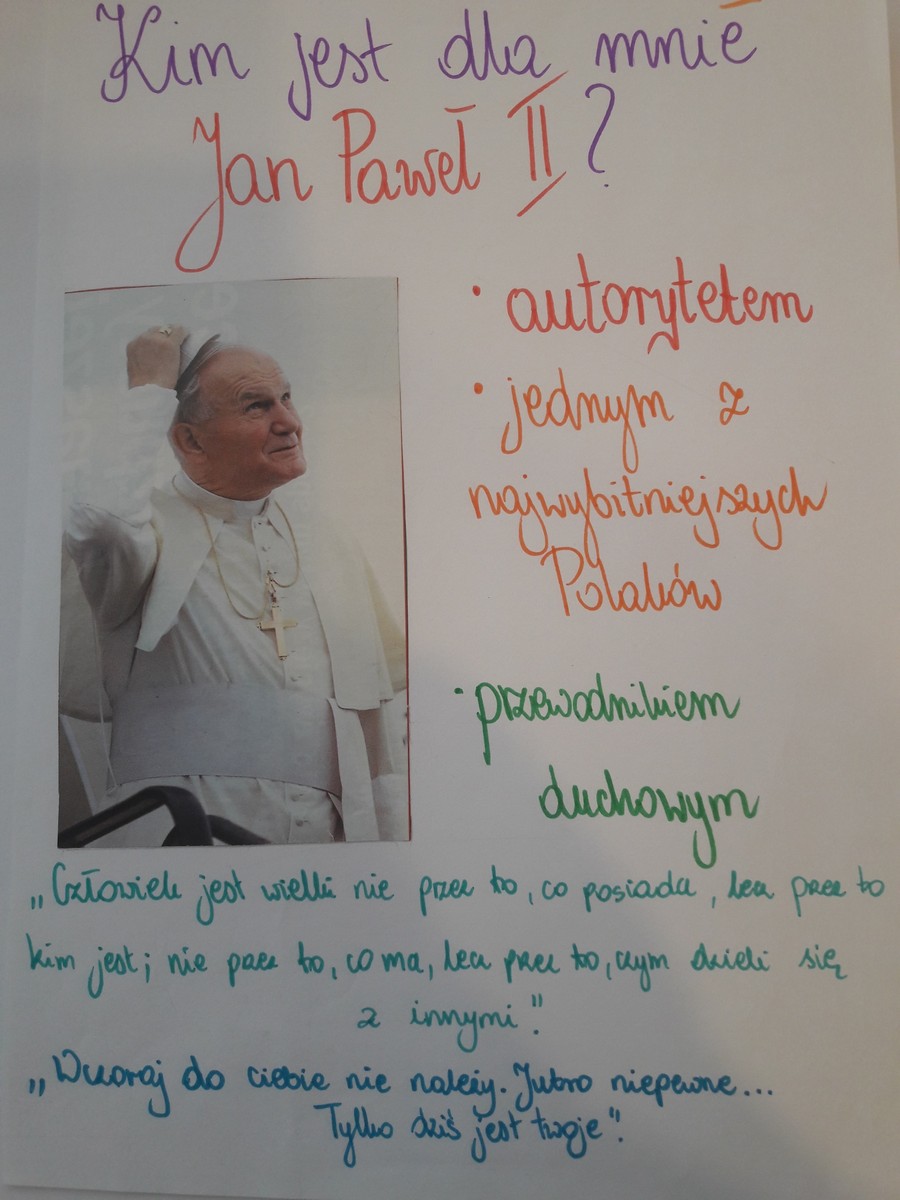 Kim jest dla mnie
Jan Paweł II?
• autorytetem
• jednym z
najwybitniejszych
Polaków
• przewodnikiem
duchowym
„Człowiek jest wielki nie przez to, co posiada, lecz przez to
kim jest; nie przez to, co ma, lecz przez to, czym dzieli się
z innymi".
„Wczoraj do ciebie nie należy. Jutro niepewne...
Tylko dziś jest twoje".